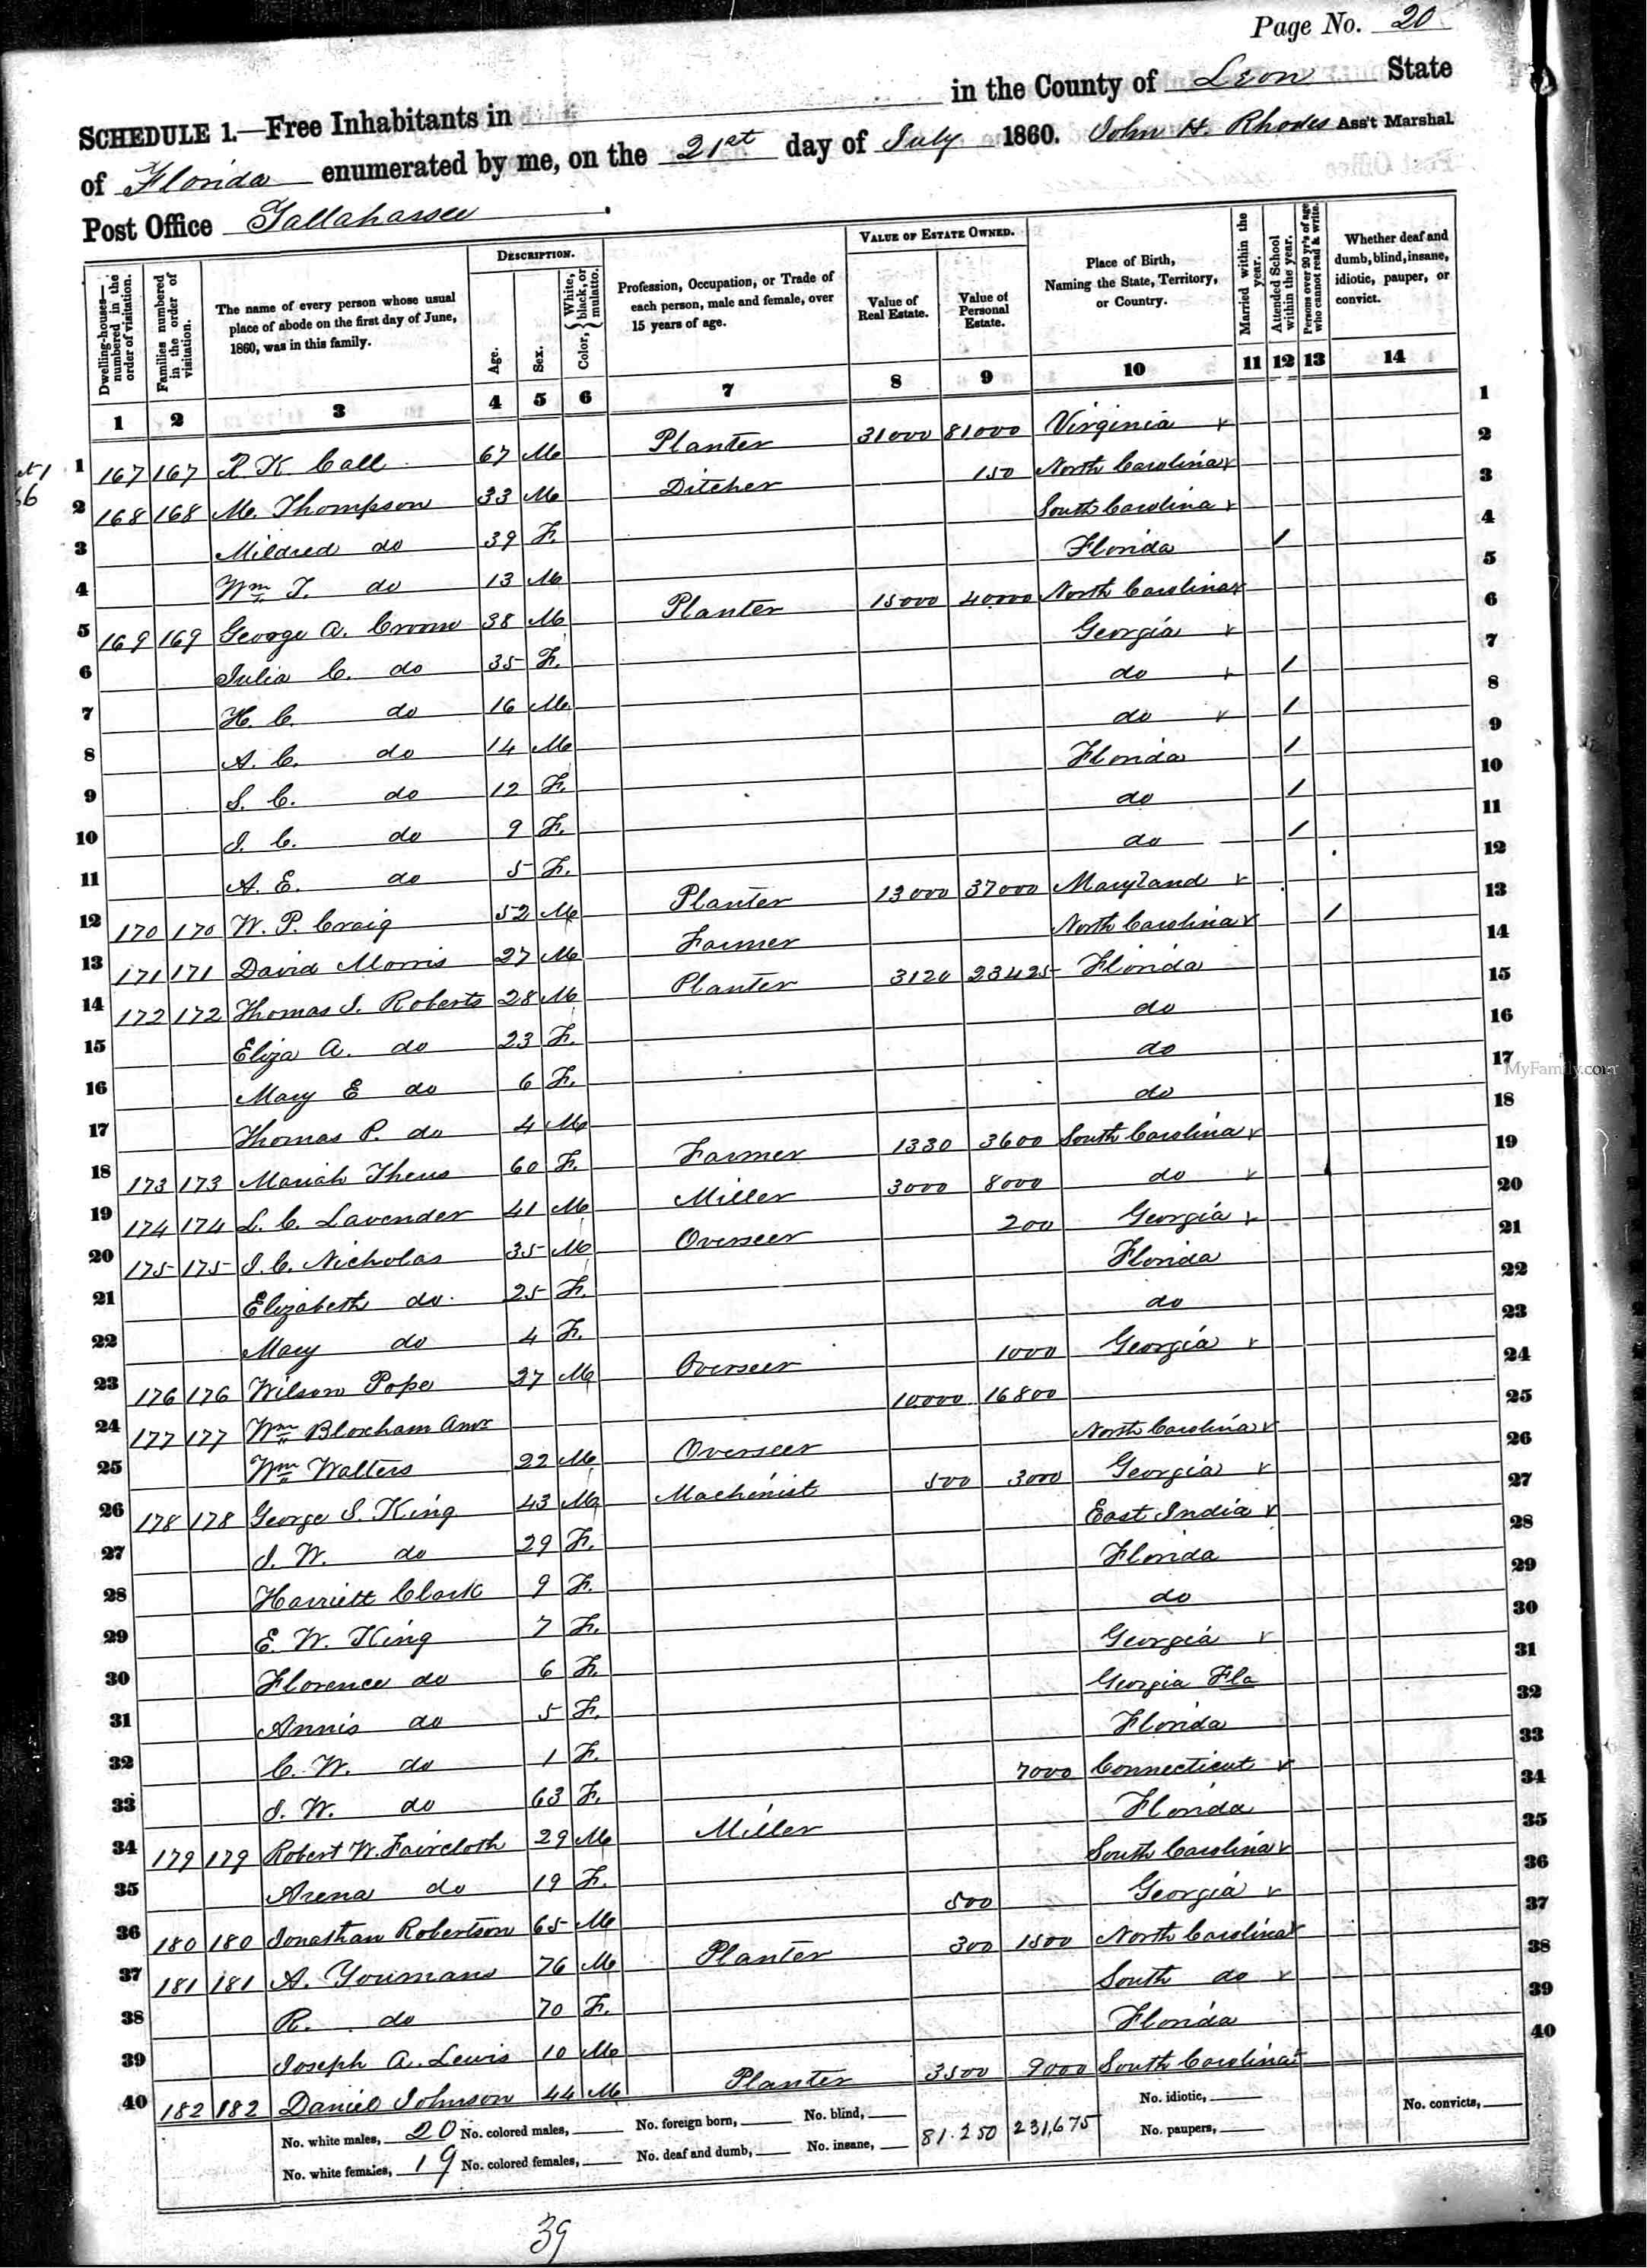 Page No. 20
SCHEDULE 1.—Free Inhabitants in in the County of Leon State
of Florida enumerated by me, on the 21st day of July 1860. John H. Rhodes Ass't Marshal
Post Office Tallahassee
DESCRIPTION. VALUE OF ESTATE OWNED.
Dwelling-houses—numbered in the order of visitation. Families numbered in the order of visitation. The name of every person whose usual place of abode on the first day of June, 1860, was in this family. Age. Sex. Color, White, black, or mulatto. Profession, Occupation, or Trade of each person, male and female, over 15 years of age. Value of Real Estate. Value of Personal Estate. Place of Birth, Naming the State, Territory, or Country. Married within the year. Attended School within the year. Persons over 20 yr's of age who cannot read & write. Whether deaf and dumb, blind, insane, idiotic, pauper, or convict.
1 2 3 4 5 6 7 8 9 10 11 12 13 14
1 167 167 R K Call 67 M Planter 31000 81000 Virginia 1
2 168 168 M. Thompson 33 M Ditcher 150 North Carolina 2
3 Mildred do 39 F. South Carolina 3
4 Wm T. do 13 M Florida / 4
5 169 169 George A. Croom 38 M Planter 15000 40000 North Carolina 5
6 Julia C. do 35 F. Georgia 6
7 H. C. do 16 M do / 7
8 A. C. do 14 M do / 8
9 S. C. do 12 F. Florida / 9
10 J. C. do 9 F. do / 10
11 A. E. do 5 F. do / 11
12 170 170 W. P. Craig 52 M Planter 13000 37000 Maryland 12
13 171 171 David Morris 27 M Farmer North Carolina / 13
14 172 172 Thomas J. Roberts 28 M Planter 3120 23425 Florida 14
15 Eliza A. do 23 F. do 15
16 Mary E do 6 F. do 16
17 Thomas P. do 4 M do 17
18 173 173 Mariah Theus 60 F. Farmer 1330 3600 South Carolina 18
19 174 174 L. C. Lavender 41 M Miller 3000 8000 do 19
20 175 175 J. C. Nicholas 35 M Overseer 200 Georgia 20
21 Elizabeth do. 25 F. Florida 21
22 Mary do 4 F. do 22
23 176 176 Wilson Pope 27 M Overseer 1000 Georgia 23
24 177 177 Wm Bloxham 10000 16800 24
25 Wm Walters 22 M Overseer North Carolina 25
26 178 178 George S. King 43 M Machinist 500 3000 Georgia 26
27 J. W. do 29 F. East India 27
28 Harriett Clark 9 F. Florida 28
29 E. W. King 7 F. do 29
30 Florence do 6 F. Georgia 30
31 Annis do 5 F. Georgia Fla 31
32 C. W. do 1 F. Florida 32
33 S. W. do 63 F. 7000 Connecticut 33
34 179 179 Robert W. Faircloth 29 M Miller Florida 34
35 Arena do 19 F. South Carolina 35
36 180 180 Jonathan Robertson 65 M 500 Georgia 36
37 181 181 A. Youmans 76 M Planter 300 1500 North Carolina 37
38 R. do 70 F. South do 38
39 Joseph A. Lewis 10 M Florida 39
40 182 182 Daniel Johnson 44 M Planter 3500 9000 South Carolina 40
No. white males, 20 No. colored males, No. foreign born, No. blind, 81.250 231,675 No. idiotic, No. convicts,
No. white females, 19 No. colored females, No. deaf and dumb, No. insane, No. paupers,
39
MyFamily.com